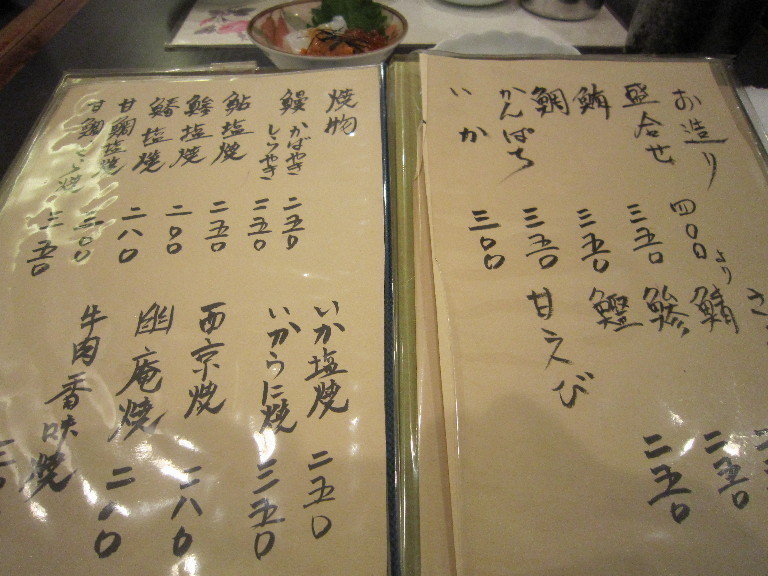 お造り
盛合せ 四〇〇より
鮪 三五〇
鯛 三五〇
かんぱち 三五〇
いか 三〇〇
鯖 二五〇
鯵 二五〇
鰹
甘えび
焼物
鰻 かばやき 二五〇
しらやき 二五〇
鮎塩焼 二五〇
鯵塩焼 二〇〇
塩焼 二八〇
甘鯛塩焼 三〇〇
甘鯛うに焼 三五〇
いか塩焼 二五〇
いかうに焼 三五〇
西京焼 二八〇
幽庵焼 二八〇
牛肉香味焼